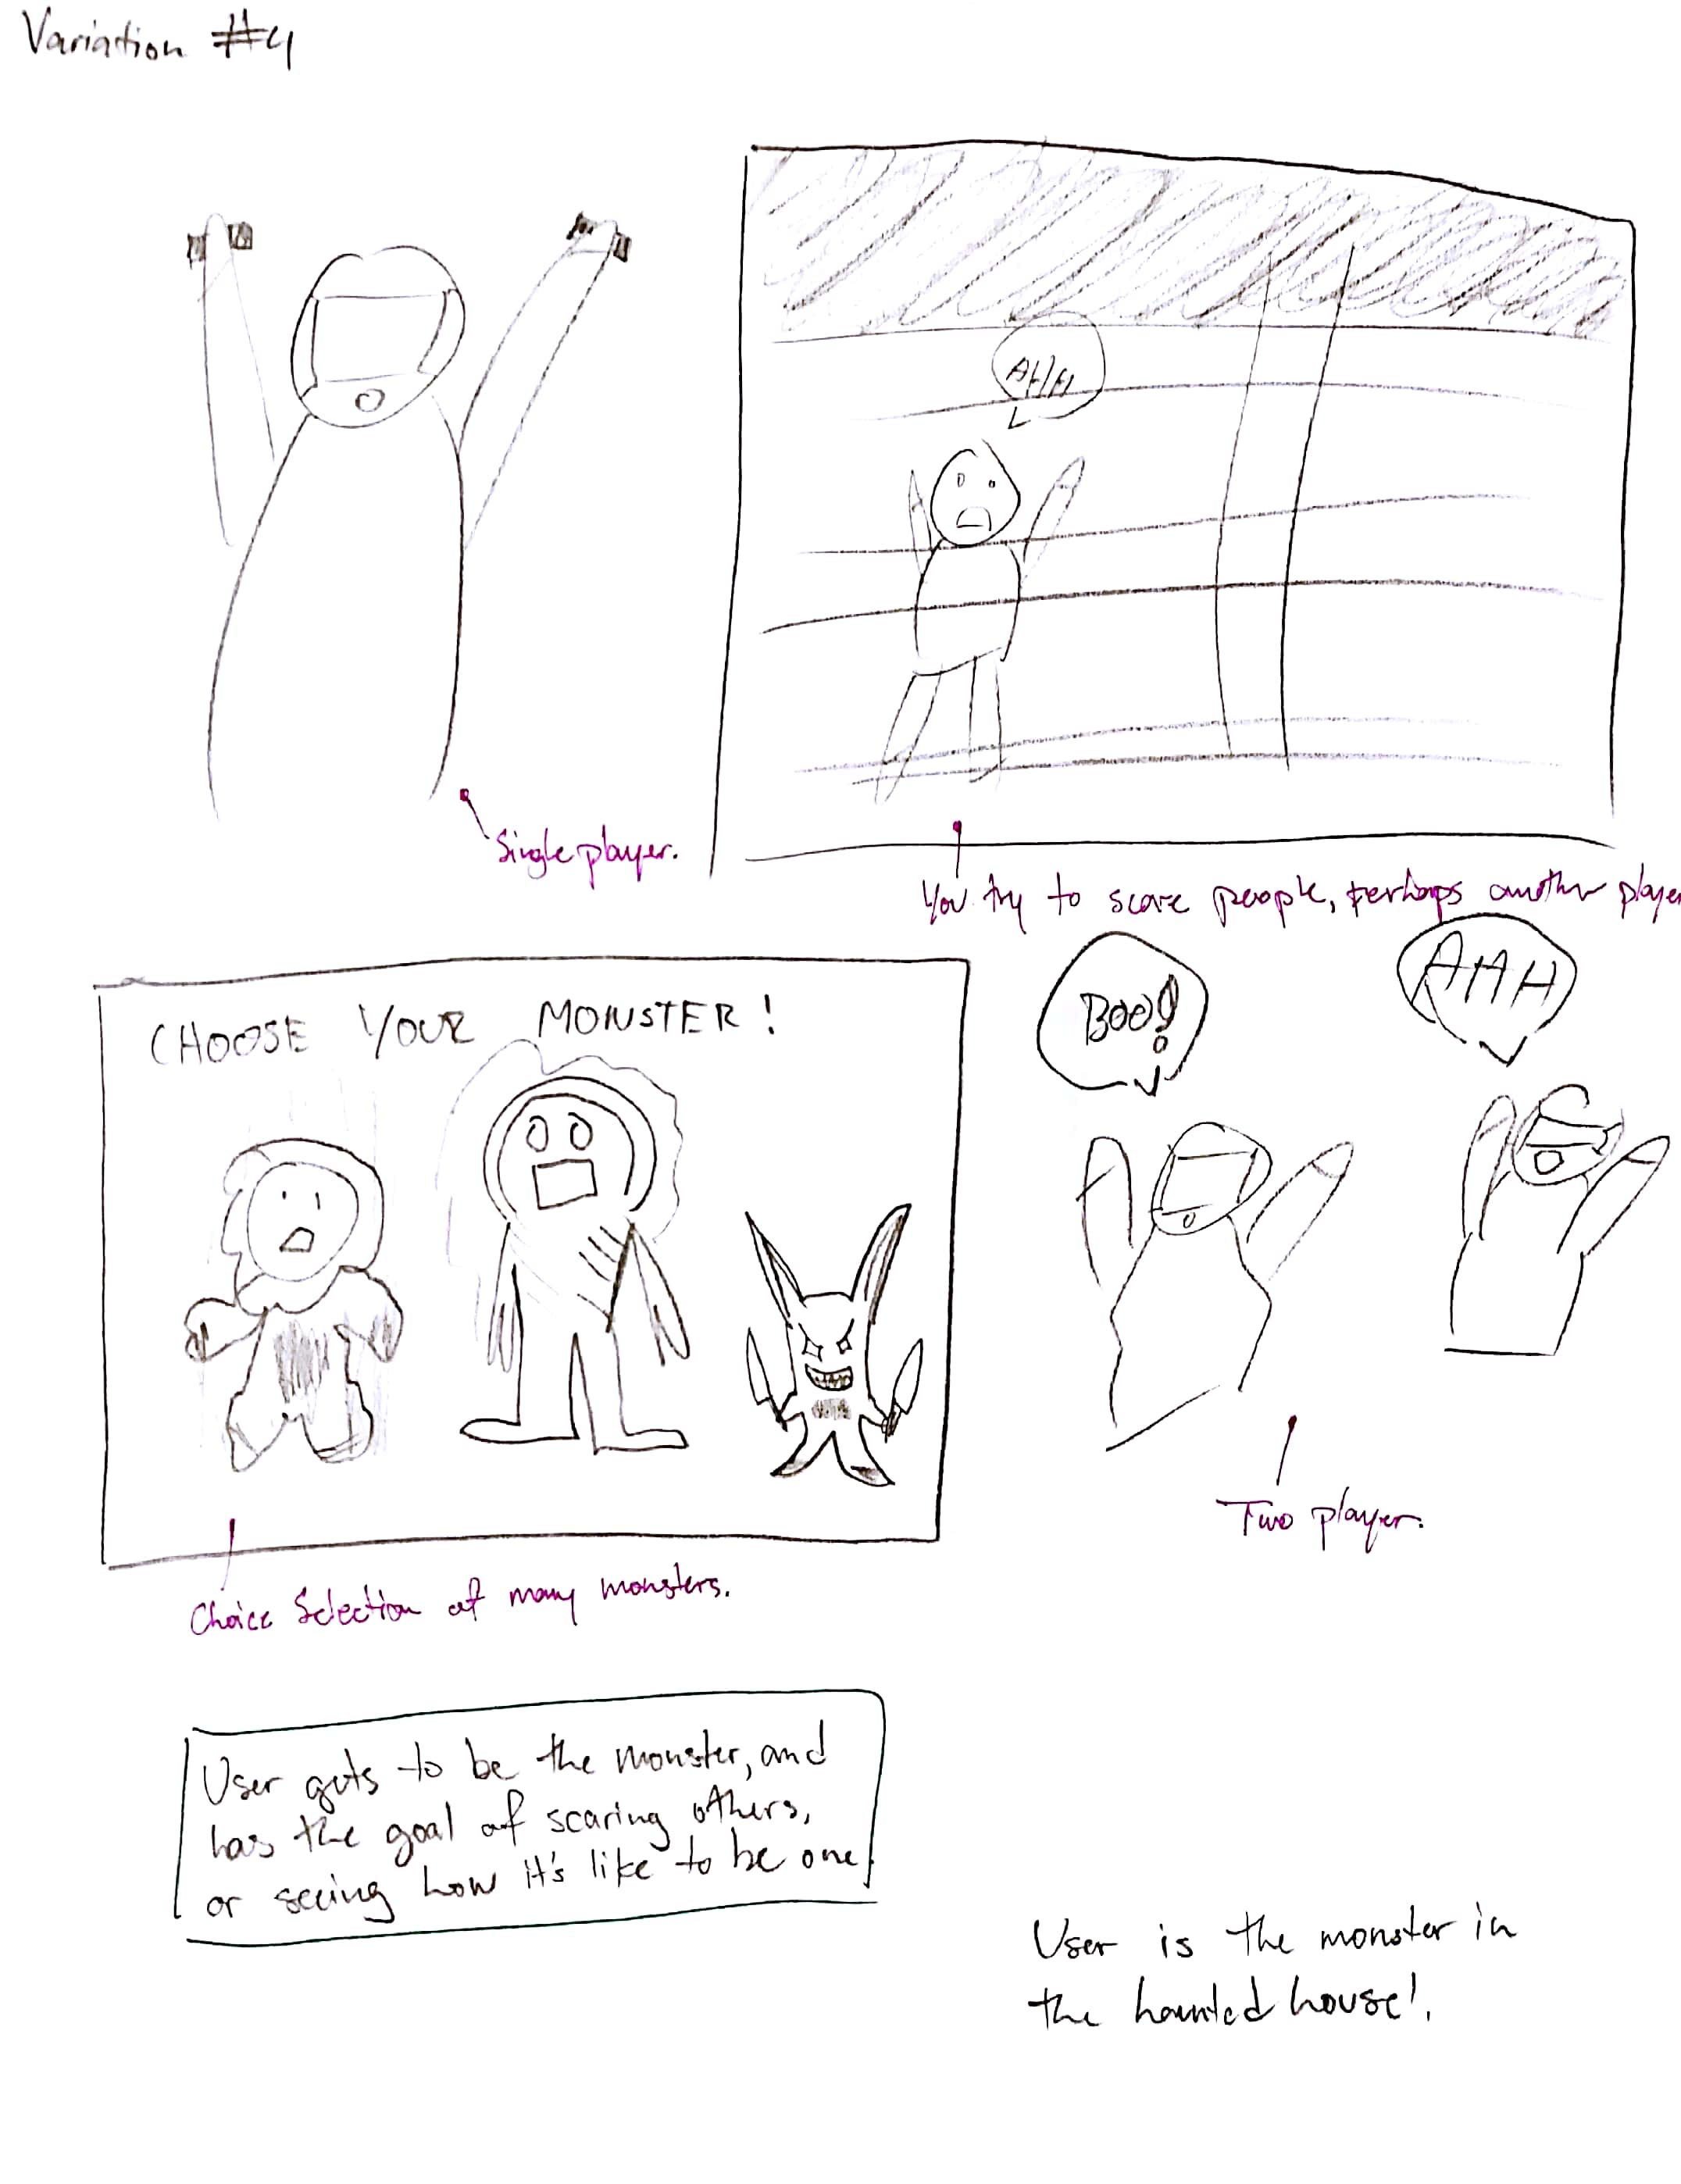 Variation #4
AHH
Single player.
You try to scare people, perhaps another player
BOO!
AHH
CHOOSE YOUR MONSTER!
Two player.
Choice Selection of many monsters.
User gets to be the monster, and
has the goal of scaring others,
or seeing how it's like to be one.
User is the monster in
the haunted house!.